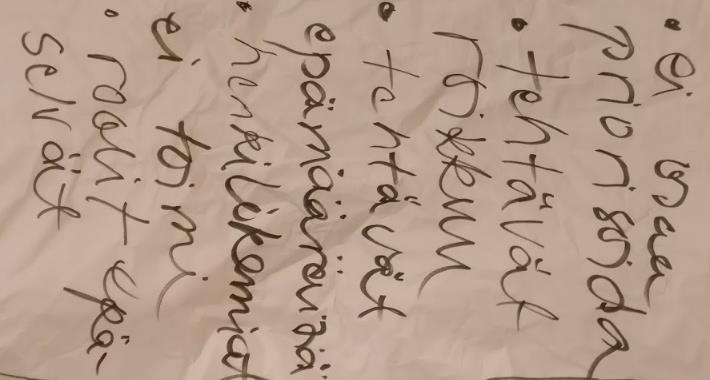 • ei osaa
priorisoida
• tehtävät
roikkuu
• tehtävät
epämääräisiä
• henkilökemiat
ei toimi
• roolit epä-
selvät